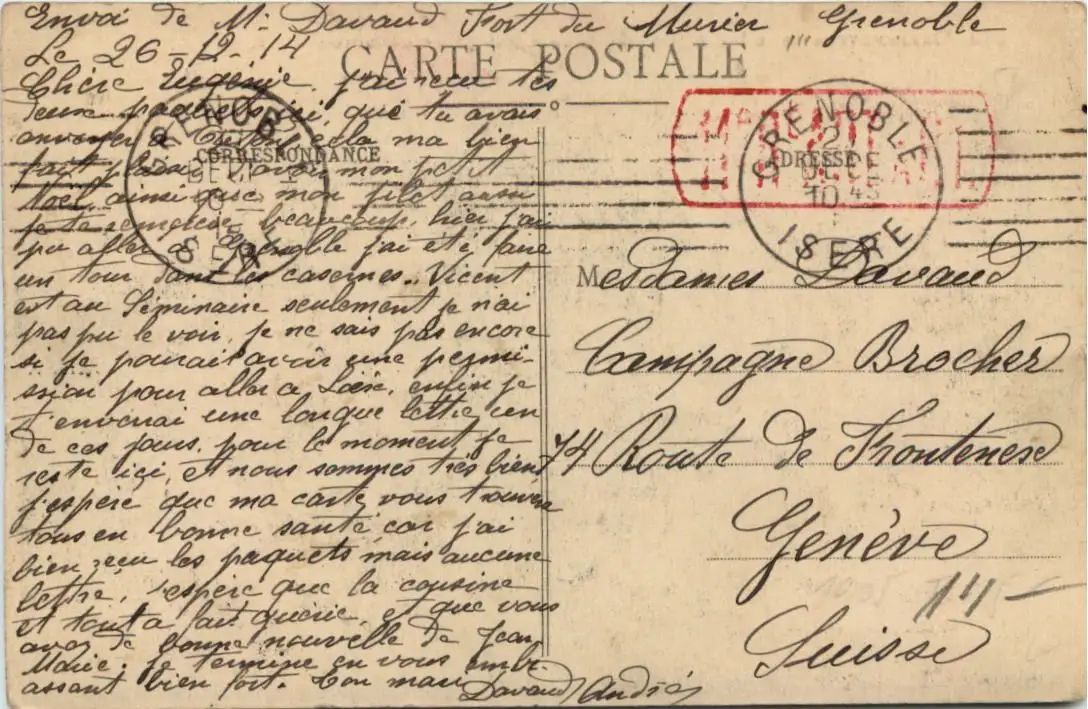 Envoi de M. Davaud Fort du Murier Grenoble
Le 26-12-14
CARTE POSTALE
Chère Eugénie, j'ai reçu tes
deux paquets ici, que tu avais
envoyer à cela ma bien
fait plaisir d'avoir mon petit
Noël, ainsi que mon filot aussi
je te remercie beaucoup, hier j'ai
pu aller à Grenoble j'ai été faire
un tour dans les casernes. Vicent
est au Séminaire seulement je n'ai
pas pu le voir, je ne sais pas encore
si je pourait avoir une permi-
ssion pour aller a enfin je
t'enverrai une longue lettre un
de ces jours, pour le moment je
reste ici, et nous sommes très bien
j'espère que ma carte vous trouvera
tous en bonne santé car j'ai
bien reçu les paquets mais aucune
lettre, j'espère que la cousine
et tout a fait guérie, et que vous
avez de bonne nouvelle de Jean
Marie. je termine en vous emb-
assant bien fort. Ton mari
Davaud André
CORRESPONDANCE
GRENOBLE
ISERE
ADRESSE
GRENOBLE
DECE
10 45
ISERE
Mesdames Davaud
Campagne Brocher
74 Route de Frontenex
Genève
Suisse